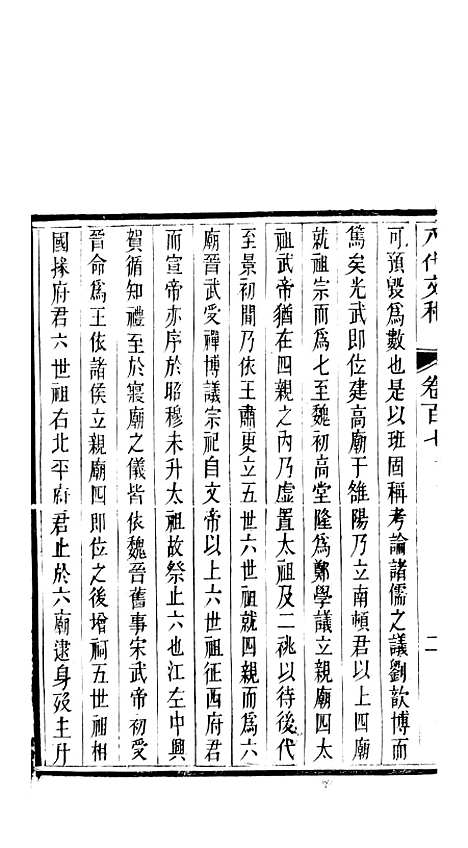 八代文粹
卷百七
二
可預毀爲數也是以班固稱考論諸儒之議劉歆博而
篤矣光武即位建高廟于雒陽乃立南頓君以上四廟
就祖宗而爲七至魏初高堂隆爲鄭學議立親廟四太
祖武帝猶在四親之內乃虛置太祖及二祧以待後代
至景初間乃依王肅更立五世六世祖就四親而爲六
廟晉武受禪博議宗祀自文帝以上六世祖征西府君
而宣帝亦序於昭穆未升太祖故祭止六也江左中興
賀循知禮至於寢廟之儀皆依魏晉舊事宋武帝初受
晉命爲王依諸侯立親廟四即位之後增祠五世祖相
國掾府君六世祖右北平府君止於六廟逮身歿主升